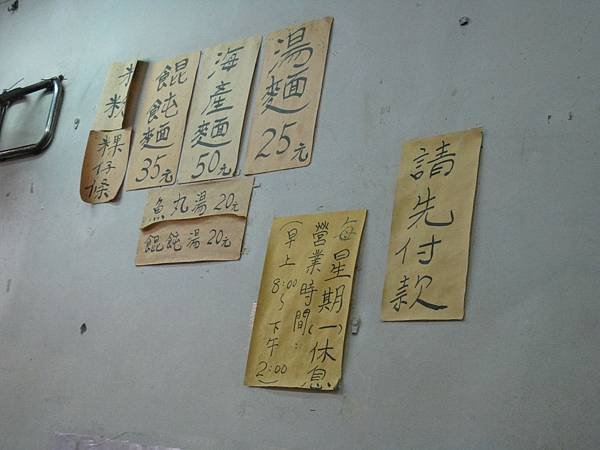 湯麵25元
海產麵50元
餛飩麵35元
米粉
粿仔條
魚丸湯20元
餛飩湯20元
請先付款
每星期一休息
營業時間:
(早上8:00~下午2:00)